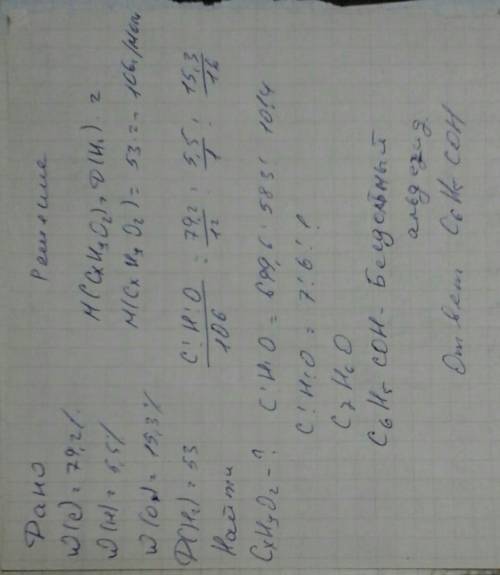 Дано
W(C) = 79,2%
W(H) = 5,5%
W(O) = 15,3%
D(H₂) = 53
Найти
CxHyOz - ?
Решение
M(CxHyOz) = D(H₂) · 2
M(CxHyOz) = 53 · 2 = 106 г/моль
C:H:O / 106 = 79,2/12 : 5,5/1 : 15,3/16
C:H:O = 699,6 : 583 : 101,4
C:H:O = 7:6:1
C₇H₆O
C₆H₅COH - Бензойный
альдегид
Ответ C₆H₅COH